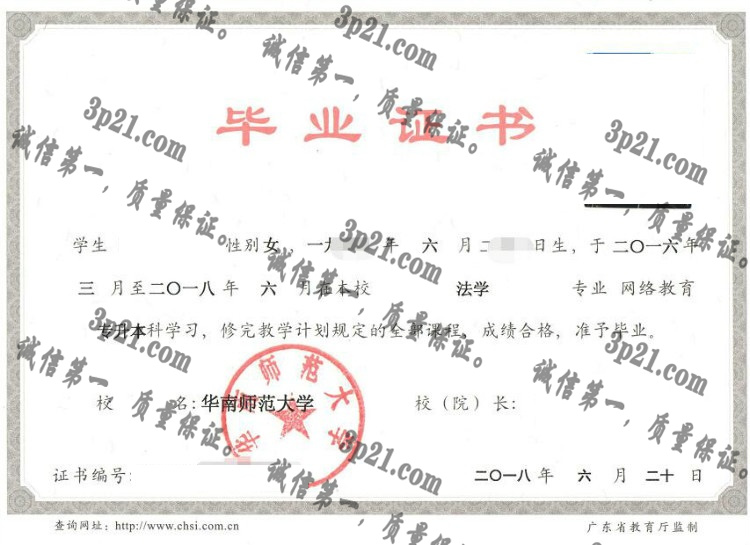 诚信第一，质量保证。
3p21.com
诚信第一，质量保证。
毕业证书
3p21.com
诚信第一，质量保证。
3p21.com
诚信第一，质量保证。
学生 性别女，一九 年 六 月二 日生，于二〇一六年
3p21.com
三 月至二〇一八年 六 月在本校 法学 专业 网络教育
诚信第一，质量保证。
专升本科学习，修完教学计划规定的全部课程，成绩合格，准予毕业。
3p21.com
诚信第一，质量保证。
3p21.com
诚信第一，质量保证。
校 名：华南师范大学 校（院）长：
华南师范大学
3p21.com
诚信第一，质量保证。
证书编号： 二〇一八年 六 月 二十 日
查询网址：http://www.chsi.com.cn 广东省教育厅监制